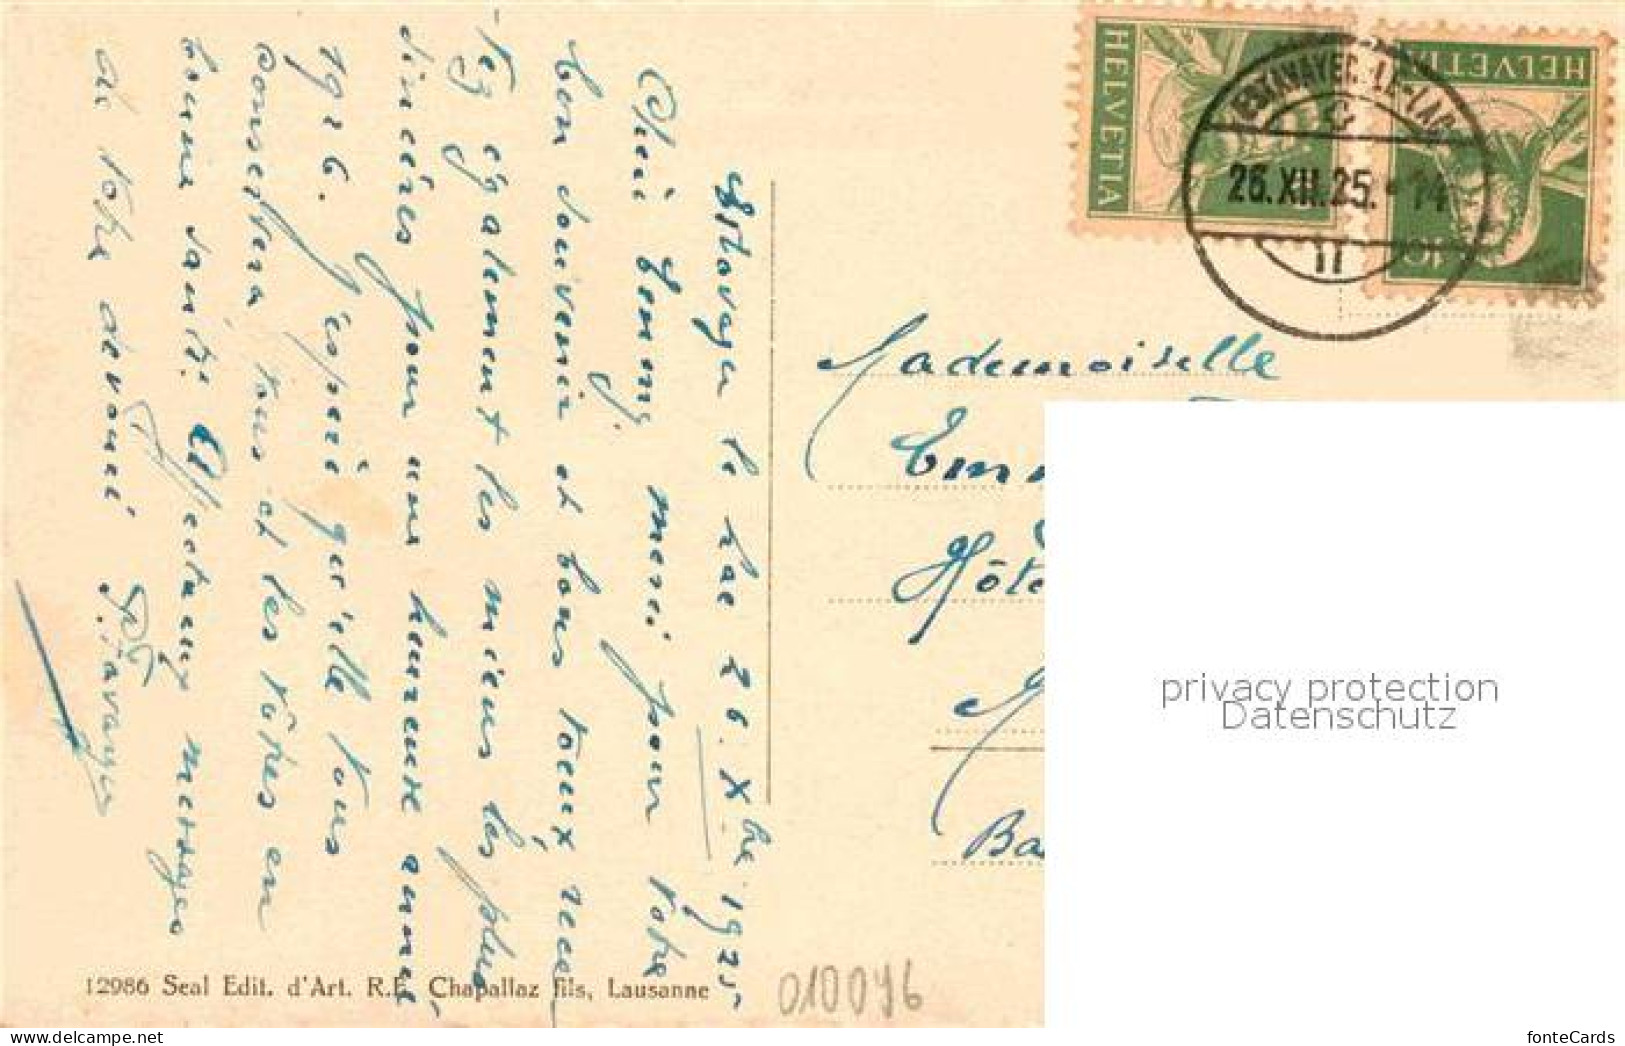 Estavayer le Lac 26. Xbre 1925
Chère Emmy, merci pour votre
bon souvenir et bons voeux rece
vez également les miens les plus
sincères pour une heureuse année
1926. J'espère qu'elle vous
conservera tous et les vôtres en
bonne santé. Affectueux messages
de votre dévoué
HELVETIA
HELVETIA
10
ESTAVAYER-LE-LAC
26.XII.25.-14
Mademoiselle
Hôte
Ba
12986 Seal Edit. d'Art. R.E. Chapallaz fils, Lausanne
010096
privacy protection
Datenschutz
fonteCards